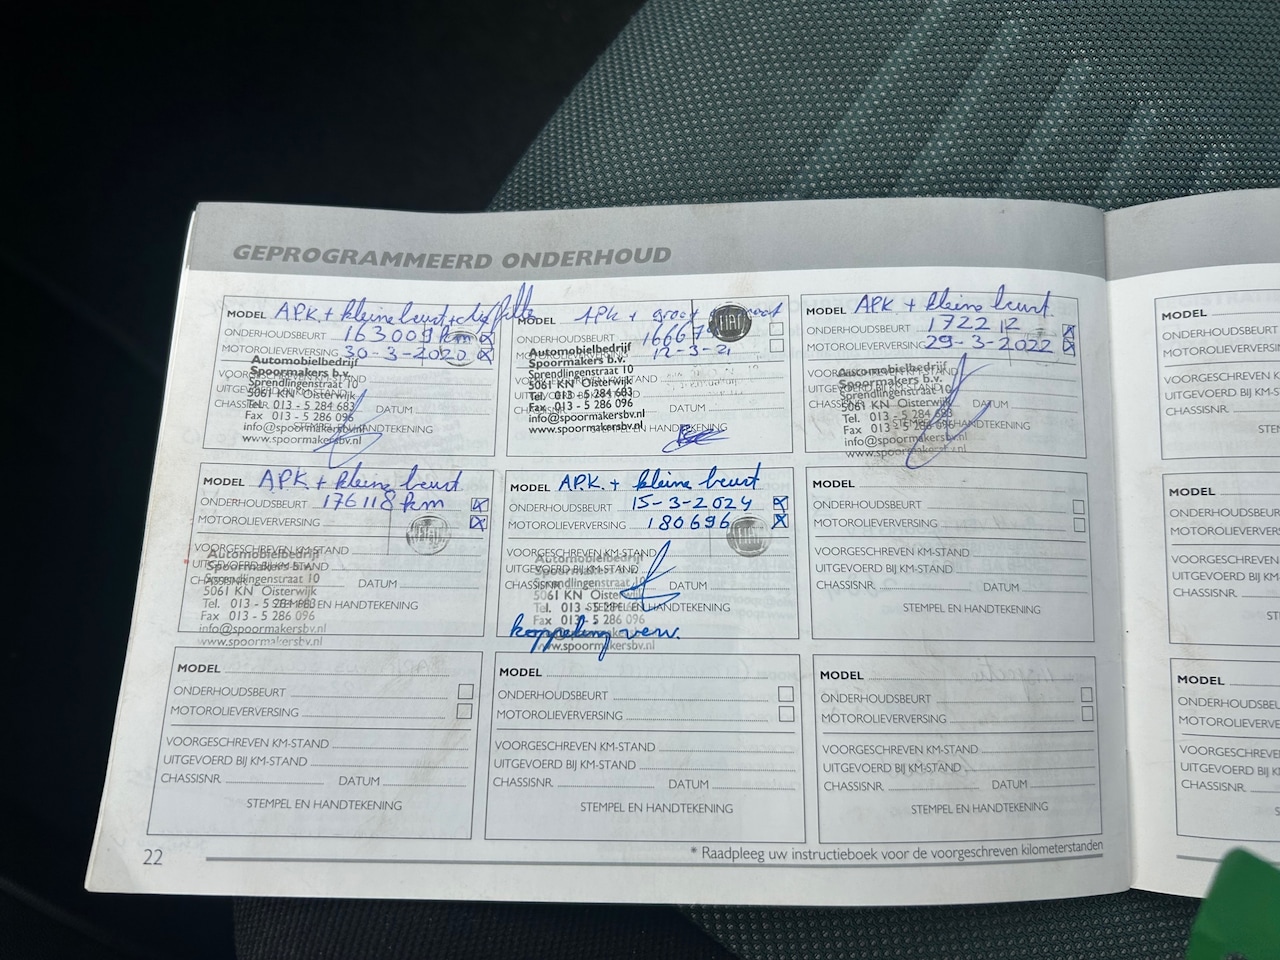 GEPROGRAMMEERD ONDERHOUD
MODEL APK + kleine beurt +
ONDERHOUDSBEURT 163009 km
MOTOROLIEVERVERSING 30-3-2020
Automobielbedrijf
Spoormakers b.v.
Sprendlingenstraat 10
5061 KN Oisterwijk
Tel. 013 - 5 284 683
Fax 013 - 5 286 096
info@spoormakersbv.nl
www.spoormakersbv.nl
CHASSISNR. DATUM
STEMPEL EN HANDTEKENING
MODEL APK + groot
FIAT
ONDERHOUDSBEURT
MOTOROLIEVERVERSING 12-3-21
Automobielbedrijf
Spoormakers b.v.
Sprendlingenstraat 10
5061 KN Oisterwijk
Tel. 013 - 5 284 683
Fax 013 - 5 286 096
info@spoormakersbv.nl
www.spoormakersbv.nl
DATUM
STEMPEL EN HANDTEKENING
MODEL APK + kleine beurt
ONDERHOUDSBEURT 172212
MOTOROLIEVERVERSING 29-3-2022
Automobielbedrijf
Spoormakers b.v.
Sprendlingenstraat 10
5061 KN Oisterwijk
Tel. 013 - 5 284 683
Fax 013 - 5 286 096
info@spoormakersbv.nl
www.spoormakersbv.nl
DATUM
STEMPEL EN HANDTEKENING
MODEL A.P.K. + kleine beurt
ONDERHOUDSBEURT 176118 km
MOTOROLIEVERVERSING
VOORGESCHREVEN KM-STAND
UITGEVOERD BIJ KM-STAND
CHASSISNR. DATUM
Automobielbedrijf
Spoormakers b.v.
Sprendlingenstraat 10
5061 KN Oisterwijk
Tel. 013 - 5 284 683
Fax 013 - 5 286 096
info@spoormakersbv.nl
www.spoormakersbv.nl
STEMPEL EN HANDTEKENING
MODEL A.P.K. + kleine beurt
ONDERHOUDSBEURT 15-3-2024
MOTOROLIEVERVERSING 180696
FIAT
VOORGESCHREVEN KM-STAND
UITGEVOERD BIJ KM-STAND
CHASSISNR. DATUM
Automobielbedrijf
Spoormakers b.v.
Sprendlingenstraat 10
5061 KN Oisterwijk
Tel. 013 - 5 284 683
Fax 013 - 5 286 096
STEMPEL EN HANDTEKENING
koppeling verv.
www.spoormakersbv.nl
MODEL
ONDERHOUDSBEURT
MOTOROLIEVERVERSING
VOORGESCHREVEN KM-STAND
UITGEVOERD BIJ KM-STAND
CHASSISNR. DATUM
STEMPEL EN HANDTEKENING
MODEL
ONDERHOUDSBEURT
MOTOROLIEVERVERSING
VOORGESCHREVEN KM-STAND
UITGEVOERD BIJ KM-STAND
CHASSISNR. DATUM
STEMPEL EN HANDTEKENING
MODEL
ONDERHOUDSBEURT
MOTOROLIEVERVERSING
VOORGESCHREVEN KM-STAND
UITGEVOERD BIJ KM-STAND
CHASSISNR. DATUM
STEMPEL EN HANDTEKENING
MODEL
ONDERHOUDSBEURT
MOTOROLIEVERVERSING
VOORGESCHREVEN KM-STAND
UITGEVOERD BIJ KM-STAND
CHASSISNR. DATUM
STEMPEL EN HANDTEKENING
22
* Raadpleeg uw instructieboek voor de voorgeschreven kilometerstanden
MODEL
ONDERHOUDSBEURT
CHASSISNR.
MODEL
CHASSISNR.
MODEL
CHASSISNR.